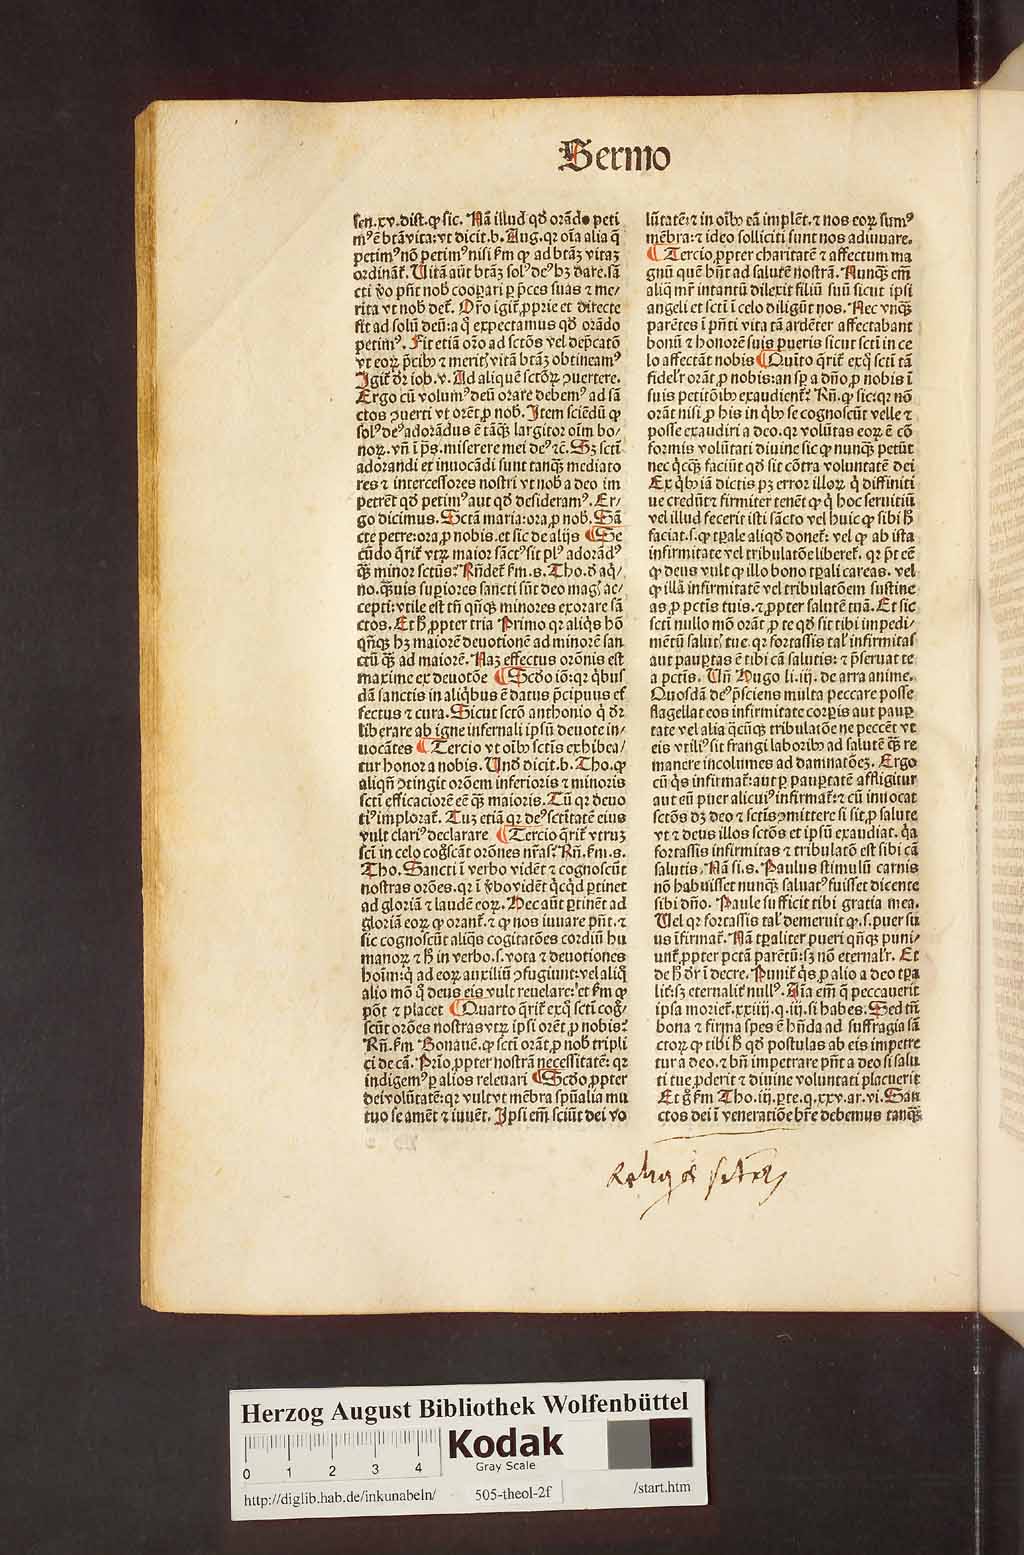 Sermo
sen.xv.dist.ꝙ sic. Nã illud qď orãdo peti
mꝰ ẽ btãvita:vt dicit.b.Aug.qꝛ oĩa alia q̃
petimꝰ nõ petimꝰ nisi fm ꝙ ad btãꝫ vitaꝫ
ordinãt̃. Uitã aũt btãꝫ solꝰ deꝰ hꝫ dare.sã
cti ṽo pñt nob̃ coopari ꝑ p̃ces suas ⁊ me/
rita vt nob̃ det̃. Oꝛ̃o igit̃ ꝓprie et directe
fit ad solũ deũ:a q̃ expectamus qď orãdo
petimꝰ. Fit etiã oꝛ̃o ad sctõs vel dep̃catõ
vt eoꝝ p̃cibꝰ ⁊ meritꝭ vitã btãꝫ obtineamꝰ
Igit̃ dr̃ iob.v. Ad aliquẽ sctõꝝ ꝯuertere.
Ergo cũ volumꝰ deũ orare debemꝰ ad sã
ctos ꝯuerti vt orẽt ꝓ nob̃. Item sciẽdũ ꝙ
solꝰ deꝰ adorãdus ẽ tãq̃ꝫ largitor oĩm bo/
noꝝ. vñ ĩ ps̃. miserere mei deꝰ ⁊c̃. Sꝫ sctĩ
adorandi et inuocãdi sunt tanq̃ꝫ mediato
res ⁊ intercessores nostri vt nob̃ a deo im
petrẽt qď petimꝰ aut qď desideramꝰ. Er/
go dicimus. Sctã maria:ora ꝓ nob̃. Sã
cte petre:ora ꝓ nobis.et sic de alijs ¶Se
cũdo q̃rit̃ vtꝝ maior sãctꝰ sit plꝰ adorãdꝰ
q̃ꝫ minor sctũs? Rñdet̃ fm.s. Tho.ď aq̃/
no.q̃ꝫuis supiores sancti sũt deo magꝭ ac/
cepti:vtile est tñ qñqꝫ minores exorare sã
ctos. Et h̃ ꝓpter tria Primo qꝛ aliqs̃ hõ
qñqꝫ hꝫ maiorẽ deuotionẽ ad minorẽ san
ctũ q̃ꝫ ad maiorẽ. Naꝫ effectus orõnis est
maxime ex deuotõe ¶Scďo iõ:qꝛ q̃bus
dã sanctis in aliq̃bus ẽ datus p̃cipuus ef
fectus ⁊ cura. Sicut sctõ anthonio q̃ dr̃
liberare ab igne infernali ipsũ deuote in/
uocãtes ¶Tercio vt oĩbꝰ sctĩs exhibea/
tur honor a nobis. Unď dicit.b. Tho.ꝙ
aliqñ ꝯtingit orõem inferioris ⁊ minoris
scti efficaciorẽ eẽ q̃ꝫ maioris. Tũ qꝛ deuo
tiꝰ implorat̃. Tuꝫ etiã qꝛ deꝰ sctĩtatẽ eius
vult clariꝰ declarare ¶Tercio q̃rit̃ vtruꝫ
sctĩ in celo cog̃scãt orõnes nr̃as? Rñ. fm.s.
Tho. Sancti ĩ verbo vidẽt ⁊ cognoscũt
nostras orões.qꝛ ĩ ṽbo vidẽt q̃cqd̃ ptinet
ad gloriã ⁊ laudẽ eoꝝ. Hec aũt ptinẽt ad
gloriã eoꝝ ꝙ orant̃.⁊ ꝙ nos iuuare pñt.⁊
sic cognoscũt aliq̃s cogitatões cordiũ hu
manoꝝ ⁊ h̃ in verbo.s.vota ⁊ deuotiones
hoĩm:q̃ ad eoꝝ auxiliũ ꝯfugiunt:vel aliq̃
alio mõ q̃ deus eis vult reuelare:et fm ꝙ
põt ⁊ placet ¶Quarto q̃rit̃ exq̃ sctĩ cog̃/
scũt orões nostras vtꝝ ipsi orẽt ꝓ nobis?
Rñ. fm Bonauẽ.ꝙ sctĩ orãt ꝓ nob̃ tripli
ci de cã. Prĩo ꝓpter nostrã necessitatẽ: qꝛ
indigemꝰ ꝑ alios releuari ¶Scďo ꝓpter
dei volũtatẽ:qꝛ vult vt mẽbra spũalia mu
tuo se amẽt ⁊ iuuẽt. Ipsi em̃ sciũt dei vo
lũtatẽ:⁊ in oĩbꝰ eã implẽt.⁊ nos eoꝝ sumꝰ
mẽbra:⁊ ideo solliciti sunt nos adiuuare.
¶Tercio ꝓpter charitatẽ ⁊ affectum ma
gnũ quẽ hñt ad salutẽ nostrã. Nunq̃ꝫ em̃
aliq̃ mr̃ intantũ dilexit filiũ suũ sicut ipsi
angeli et sctĩ ĩ celo diligũt nos. Nec vnq̃ꝫ
parẽtes ĩ pñti vita tã ardẽter affectabant
bonũ ⁊ honorẽ suis pueris sicut sctĩ in ce
lo affectãt nobis ¶Quĩto q̃rit̃ exq̃ sctĩ tã
fidelꝛ̃ orãt ꝓ nobis:an sp̃ a dño ꝓ nobis ĩ
suis petitõibꝰ exaudient̃? Rñ.ꝙ sic:qꝛ nõ
orãt nisi ꝓ his in q̃bꝰ se cognoscũt velle ⁊
posse exaudiri a deo.qꝛ volũtas eoꝝ ẽ cõ
formis volũtati diuine sic ꝙ nunq̃ꝫ petũt
nec q̃cq̃ꝫ faciũt qď sit cõtra voluntatẽ dei
Ex q̃bꝰ iã dictis pꝫ error illoꝝ q̃ diffiniti
ue credũt ⁊ firmiter tenẽt ꝙ q̃ hoc seruitiũ
vel illud fecerit isti sãcto vel huic ꝙ sibi h̃
faciat.s.ꝙ tꝑale aliqď donet̃: vel ꝙ ab ista
infirmitate vel tribulatõe liberet̃. qꝛ pt̃ eẽ
ꝙ deus vult ꝙ illo bono tꝑali careas. vel
ꝙ illã infirmitatẽ vel tribulatõem sustine
as ꝓ pctĩs tuis.⁊ ꝓpter salutẽ tuã. Et sic
sctĩ nullo mõ orãt ꝓ te qď sit tibi impedi/
mẽtũ salutꝭ tue.qꝛ fortassis talꝭ infirmitas
aut paupertas ẽ tibi cã salutis: ⁊ p̃seruat te
a pctĩs. Uñ Hugo li.iij. de arra anime.
Quosdã deꝰ p̃sciens multa peccare posse
flagellat eos infirmitate corpis aut paup
tate vel alia q̃cũqꝫ tribulatõe ne peccẽt vt
eis vtiliꝰ sit frangi laboribꝰ ad salutẽ q̃ꝫ re
manere incolumes ad damnatõeꝫ. Ergo
cũ q̃s infirmat̃:aut ꝑ paupertatẽ affligitur
aut eñ puer alicuiꝰ infirmat̃:⁊ cũ inuocat
sctõs dꝫ deo ⁊ sctĩs ꝯmittere si sit ꝓ salute
vt ⁊ deus illos sctõs et ipsũ exaudiat. q̃a
fortassis infirmitas ⁊ tribulatõ est sibi cã
salutis. Nã si.s. Paulus stimulũ carnis
nõ habuisset nunq̃ꝫ saluatꝰ fuisset dicente
sibi dño. Paule sufficit tibi gratia mea.
Uel qꝛ fortassis talꝭ demeruit ꝙ.s.puer su
us ĩfirmat̃. Nã tꝑaliter pueri qñqꝫ puni/
unt̃ ꝓpter pctã parẽtũ:sꝫ nõ eternalr̃. Et
de h̃ dr̃ ĩ decre. Punit̃ q̃s ꝓ alio a deo tꝑa
lit̃:sꝫ eternalit̃ nullꝰ. Aĩa em̃ q̃ peccauerit
ipsa moriet̃.xxiiij.q.iij.si habes. Sed tñ
bona ⁊ firma spes ẽ hñda ad suffragia sã
ctoꝝ ꝙ tibi h̃ qď postulas ab eis impetre
tur a deo.⁊ bñ impetrare pñt a deo si salu
ti tue ꝓderit ⁊ diuine voluntati placuerit
Et g̃ fm Tho.iij.pte.q.xxv.ar.vi. San
ctos dei ĩ veneratiõe hr̃e debemus tanq̃ꝫ
Herzog August Bibliothek Wolfenbüttel
Kodak
Gray Scale
0 1 2 3 4
http://diglib.hab.de/inkunabeln/ 505-theol-2f /start.htm